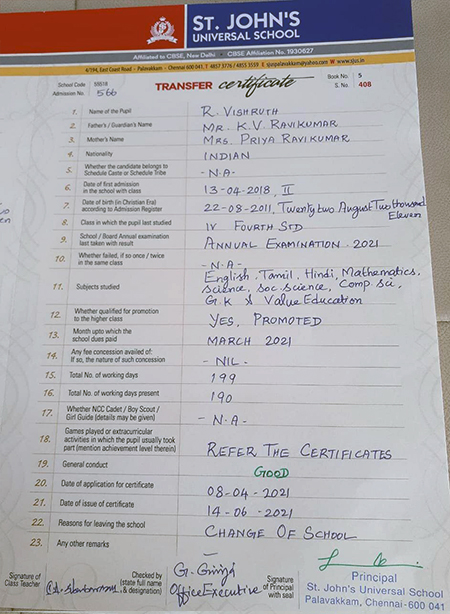 ST. JOHN'S
UNIVERSAL SCHOOL
Affiliated to CBSE, New Delhi • CBSE Affiliation No. 1930627
4/194, East Coast Road - Palavakkam - Chennai 600 041. T 4857 3776 / 4855 3559 E sjuspalavakkam@yahoo.com W www.sjus.in
School Code 55518
Book No. 5
TRANSFER certificate
Admission No. 566
S. No. 408
1. Name of the Pupil R. VISHRUTH
2. Father's / Guardian's Name MR. K.V. RAVIKUMAR
3. Mother's Name MRS. PRIYA RAVIKUMAR
4. Nationality INDIAN
5. Whether the candidate belongs to
Schedule Caste or Schedule Tribe - N.A -
6. Date of first admission
in the school with class 13-04-2018, II
7. Date of birth (in Christian Era)
according to Admission Register 22-08-2011, Twenty two August Two thousand
Eleven
8. Class in which the pupil last studied IV FOURTH STD
9. School / Board Annual examination
last taken with result ANNUAL EXAMINATION 2021
10. Whether failed, if so once / twice
in the same class - N.A -
11. Subjects studied English, Tamil, Hindi, Mathematics,
Science, Soc. Science, Comp. Sci,
G.K & Value Education
12. Whether qualified for promotion
to the higher class YES, PROMOTED
13. Month upto which the
school dues paid MARCH 2021
14. Any fee concession availed of:
If so, the nature of such concession - NIL -
15. Total No. of working days 199
16. Total No. of working days present 190
17. Whether NCC Cadet / Boy Scout /
Girl Guide (details may be given) - N.A -
18. Games played or extracurricular
activities in which the pupil usually took
part (mention achievement level therein) REFER THE CERTIFICATES
19. General conduct GOOD
20. Date of application for certificate 08-04-2021
21. Date of issue of certificate 14-06-2021
22. Reasons for leaving the school CHANGE OF SCHOOL
23. Any other remarks -
Signature of
Class Teacher
Checked by
(state full name
& designation)
Office Executive
Signature
of Principal
with seal
Principal
St. John's Universal School
Palavakkam, Chennai - 600 041